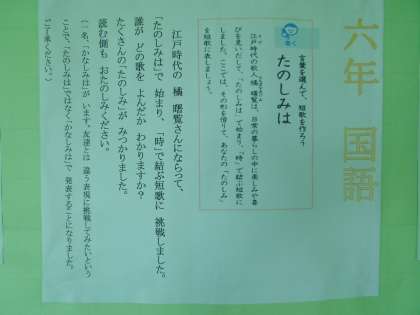 六年 国語
言葉を選んで、短歌を作ろう
書く
たのしみは
江戸時代の歌人橘曙覧は、日常の暮らしの中に楽しみや喜
びを見いだして、「たのしみは」で始まり、「時」で結ぶ短歌に
しました。ここでは、その形を借りて、あなたの「たのしみ」
を短歌に表しましょう。
江戸時代の 橘 曙覧さんにならって、
「たのしみは」で 始まり、「時」で結ぶ短歌に 挑戦しました。
誰が どの歌を よんだか わかりますか?
たくさんの「たのしみ」が みつかりました。
読む側も おたのしみください。
(一名、「かなしみは」が います。友達とは 違う表現に挑戦してみたいという
ことで、「たのしみは」ではなく「かなしみは」で 発表することになりました。
ご了承ください。)